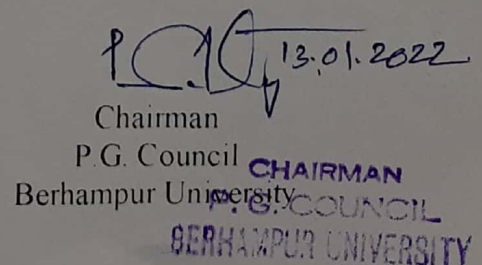 13.01.2022
Chairman
P.G. Council
Berhampur University
CHAIRMAN
P.G. COUNCIL
BERHAMPUR UNIVERSITY